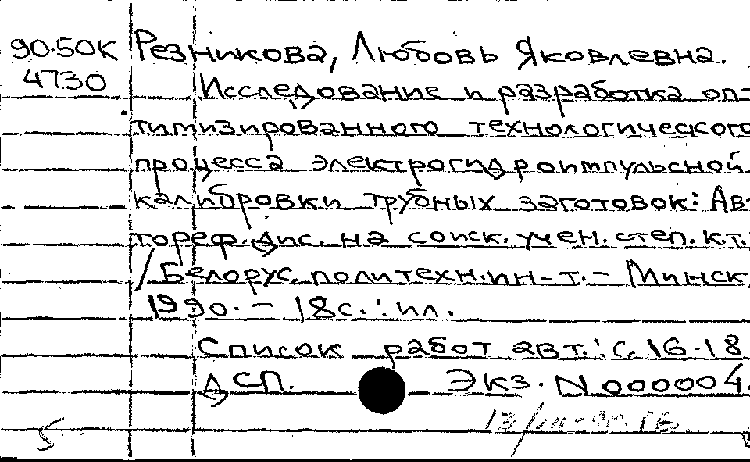 90-50К Резникова, Любовь Яковлевна.
4730 Исследование и разработка оп-
тимизированного технологического
процесса электрогидроимпульсной
калибровки трубных заготовок: Ав-
тореф. дис. на соиск. учен. степ. к.т.
/ Белорус. политехн. ин-т. - Минск,
1990. - 18с. : ил.
Список работ авт.: с. 16-18
ДСП. Экз. N 000004.
5